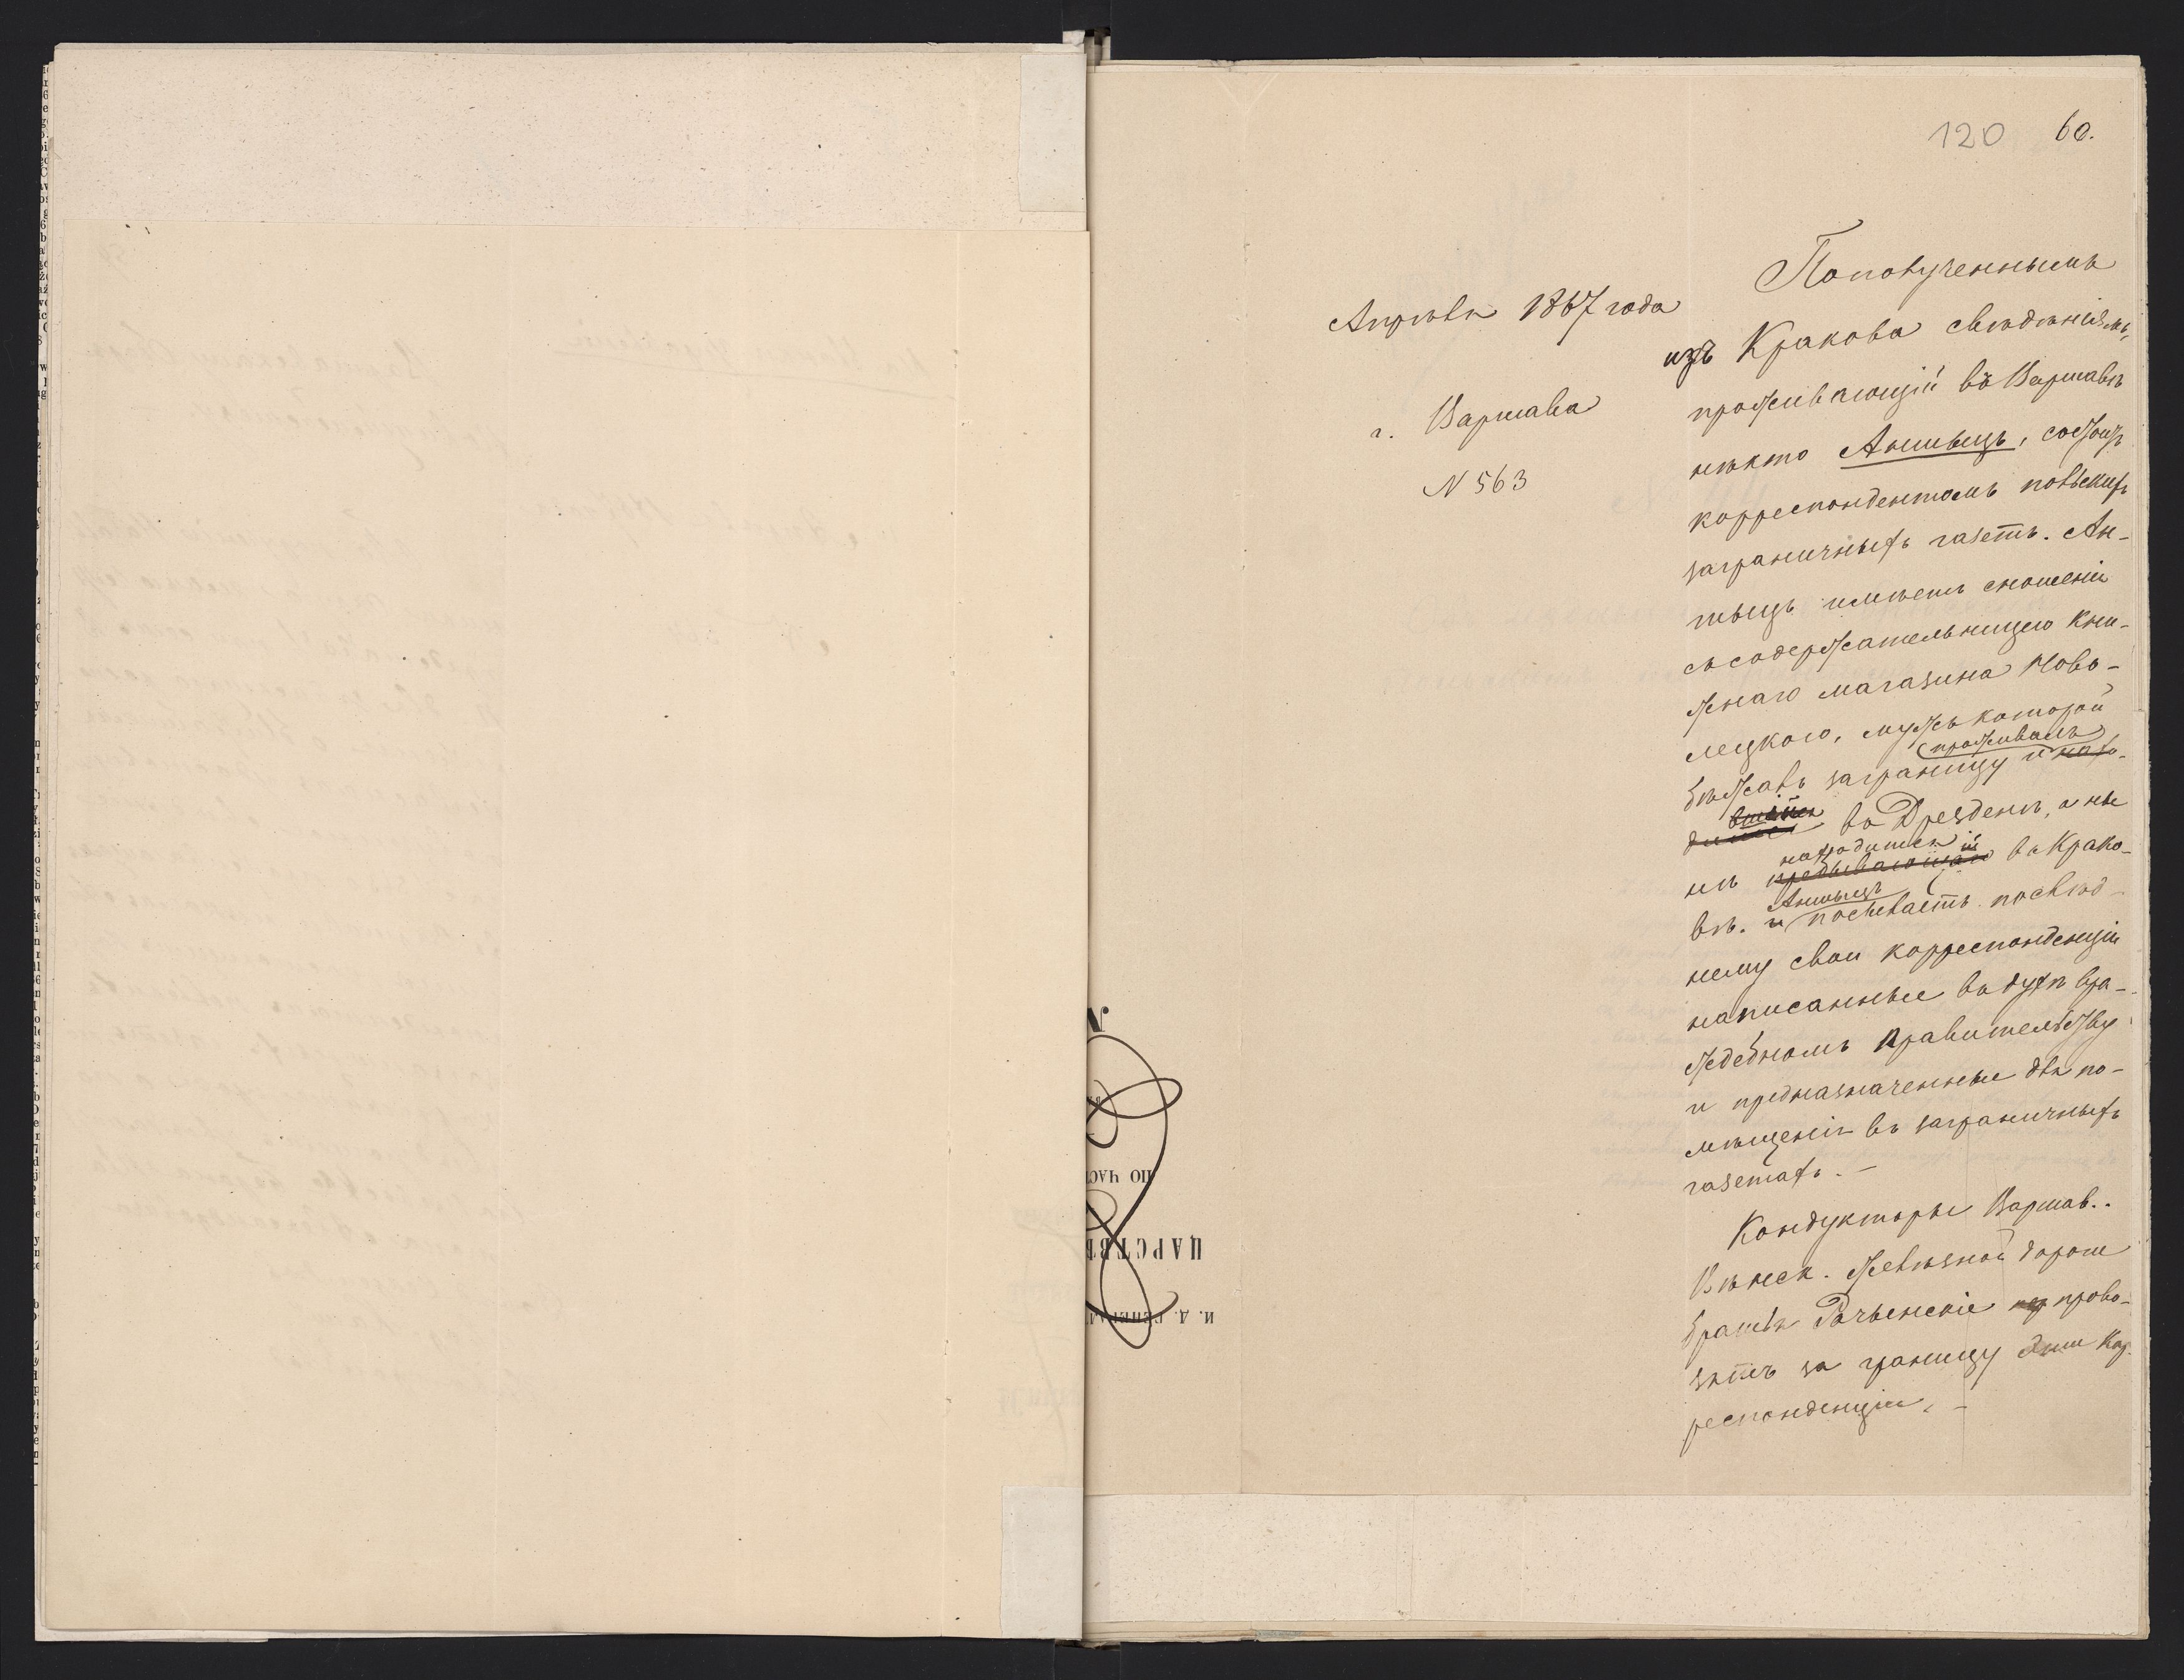 120 60.
Апрѣля 1867 года
г. Варшава
N 563
По полученнымъ
изъ Кракова свѣдѣніямъ,
проживающій въ Варшавѣ
нѣкто , состоитъ
корреспондентомъ польскихъ
заграничныхъ газетъ. Ан-
имѣетъ сношенія
съ содержательницею кни-
жнаго магазина Ново-
лецкого, мужъ которой
проживалъ
бѣжалъ заграницу и нахо-
въ Дрезденѣ, а ны
находится
нѣ въ Крако-
вѣ. и посылаетъ послѣд-
нему свои корреспонденціи
написанные въ духѣ вра-
ждебномъ Правительству
и предназначенные для по-
мѣщенія въ заграничныхъ
газетахъ. —
Кондукторы Варшав..
Вѣнск. Желѣзной дороги
братья провo-
зятъ за границу эти Кор-
респонденціи. —
ПО ЧАС
ЦАРСТВѢ
И. Д. ГЕНЕРАЛ